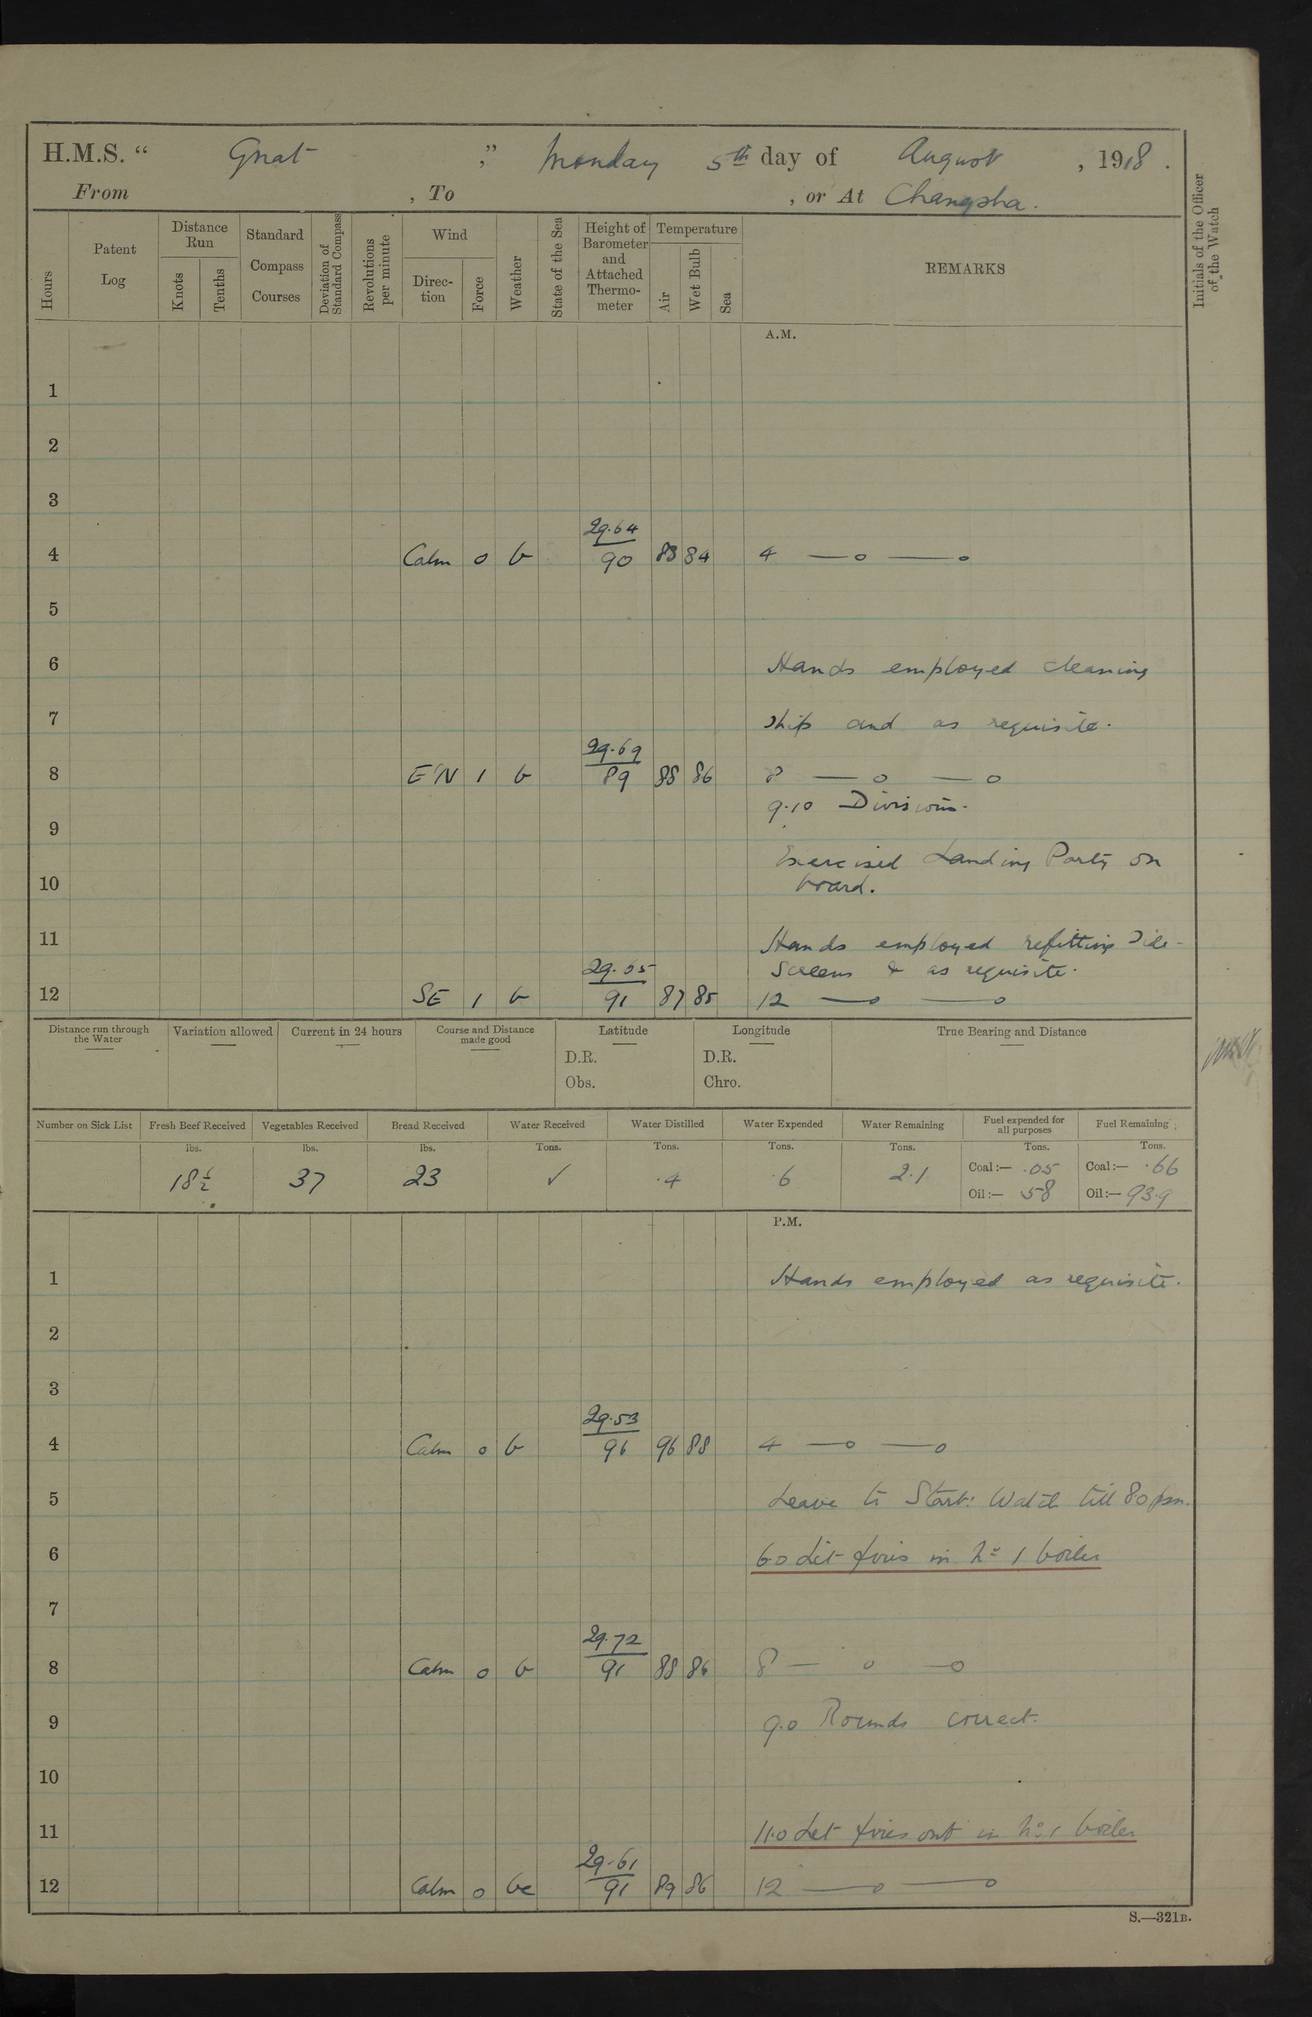 H.M.S. “ Gnat ,” Monday 5th day of August , 1918 .
From , To , or At Changsha.
Hours
Patent Log
Distance Run
Knots
Tenths
Standard Compass Courses
Deviation of Standard Compass
Revolutions per minute
Wind
Direction
Force
Weather
State of the Sea
Height of Barometer and Attached Thermometer
Temperature
Air
Wet Bulb
Sea
REMARKS
Initials of the Officer of the Watch
A.M.
1
2
3
29.64
4 Calm 0 b 90 83 84 4 —o —o
5
6 Hands employed cleaning
7 ship and as requisite.
29.69
8 E'N 1 b 89 88 86 8 —o —o
9.10 Divisions.
9
Exercised Landing Party on
10 board.
11 Hands employed refitting Side-
29.65 Screens & as requisite.
12 SE 1 b 91 87 85 12 —o —o
Distance run through the Water
Variation allowed
Current in 24 hours
Course and Distance made good
Latitude
D.R.
Obs.
Longitude
D.R.
Chro.
True Bearing and Distance
Number on Sick List
Fresh Beef Received
lbs.
18 1/2
Vegetables Received
lbs.
37
Bread Received
lbs.
23
Water Received
Tons.
✓
Water Distilled
Tons.
.4
Water Expended
Tons.
.6
Water Remaining
Tons.
2.1
Fuel expended for all purposes
Tons.
Coal:— .05
Oil:— .58
Fuel Remaining
Tons.
Coal:— .66
Oil:— 93.9
P.M.
1 Hands employed as requisite.
2
3
29.53
4 Calm 0 b 96 96 88 4 —o —o
5 Leave to Starb: Watch till 8.0 pm.
6 6.0 Lit fires in No 1 boiler
7
29.72
8 Calm 0 b 91 88 86 8 — o —o
9 9.0 Rounds correct.
10
11 11.0 Let fires out in No 1 boiler
29.61
12 Calm 0 bc 91 89 86 12 —o —o
S.—321B.